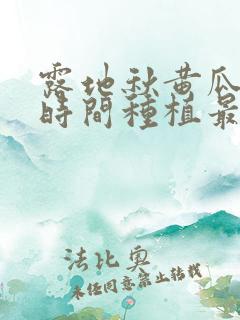 露地秋黄瓜
時間種植最
法比奥
未经同意禁止转载